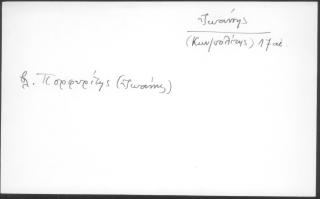 Ἰωάννης
(Κων/πολίτης) 17 αἰ
βλ. Πορφυρίτης (Ἰωάννης)